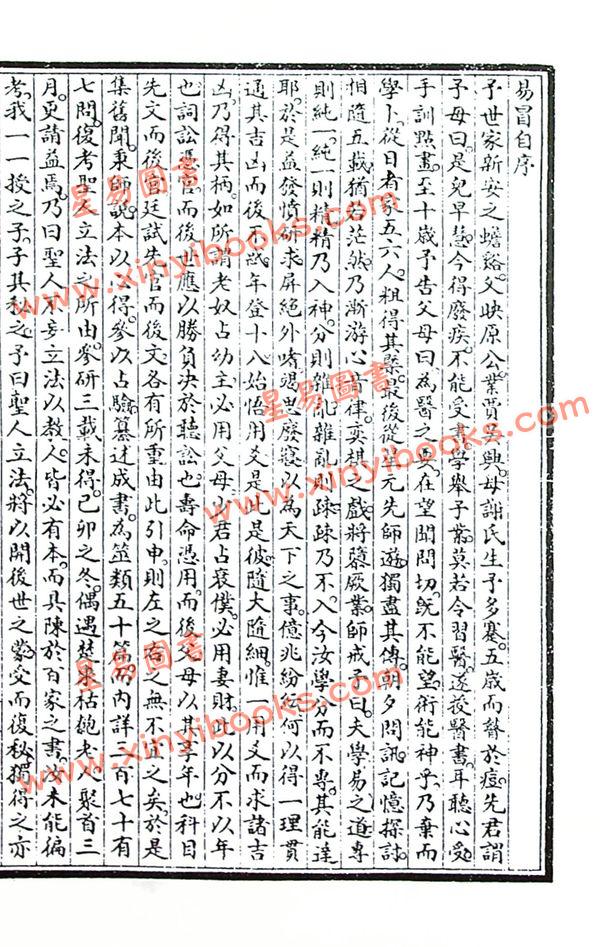 易冒自序
予世家新安之蟾谿父映原公業賈吳興母謝氏生予多蹇五歲而瞽於痘先君謂
予母曰是兒早慧今得廢疾不能受書學舉子業莫若令習醫遂授醫書耳聽心受
手訓點畫至十歲予告父母曰為醫之要在望聞問切旣不能望術能神乎乃棄而
學卜從日者家五六人粗得其槩最後從 元先師遊獨盡其傳朝夕問訊記憶探討
相隨五載猶若茫然乃漸游心音律奕棋之戲將隳厥業師戒予曰夫學易之道專
則純一純一則精精乃入神分則雜亂雜亂則疎疎乃不入今汝學分而不專其能達
耶於是益發憤研求屏絕外嗜 廢寢以為天下之事億兆紛紜何以得一理貫
通其吉凶而後不 年登十八始悟用爻是此是彼隨大隨細惟一用爻而求諸吉
凶乃得其柄如所謂老奴占幼主必用父母少君占衰僕必用妻財此以分不以年
也詞訟憑官而後世應以勝負決於聽訟也壽命憑用而後父母以其享年也科目
先文而後官廷試先官而後文各有所重由此引申則左之右之無不宜之矣於是
集舊聞秉師說本以公得參以占驗纂述成書為筮類五十篇而內詳三百七十有
七問復考聖人立法之所由參研三載未得己卯之冬偶遇楚來枯匏老人聚首三
月更請益焉乃曰聖人不妄立法以教人皆必有本而具陳於百家之書汝未能徧
考我一一授之子子其私之予曰聖人立法將以開後世之蒙受而復秘獨得之亦
星易圖書
www.xinyibooks.com
星易圖書
www.xinyibooks.com
www.xinyibooks.com
星易圖書
www.xinyibooks.com
星易圖書
www.xinyibooks.com